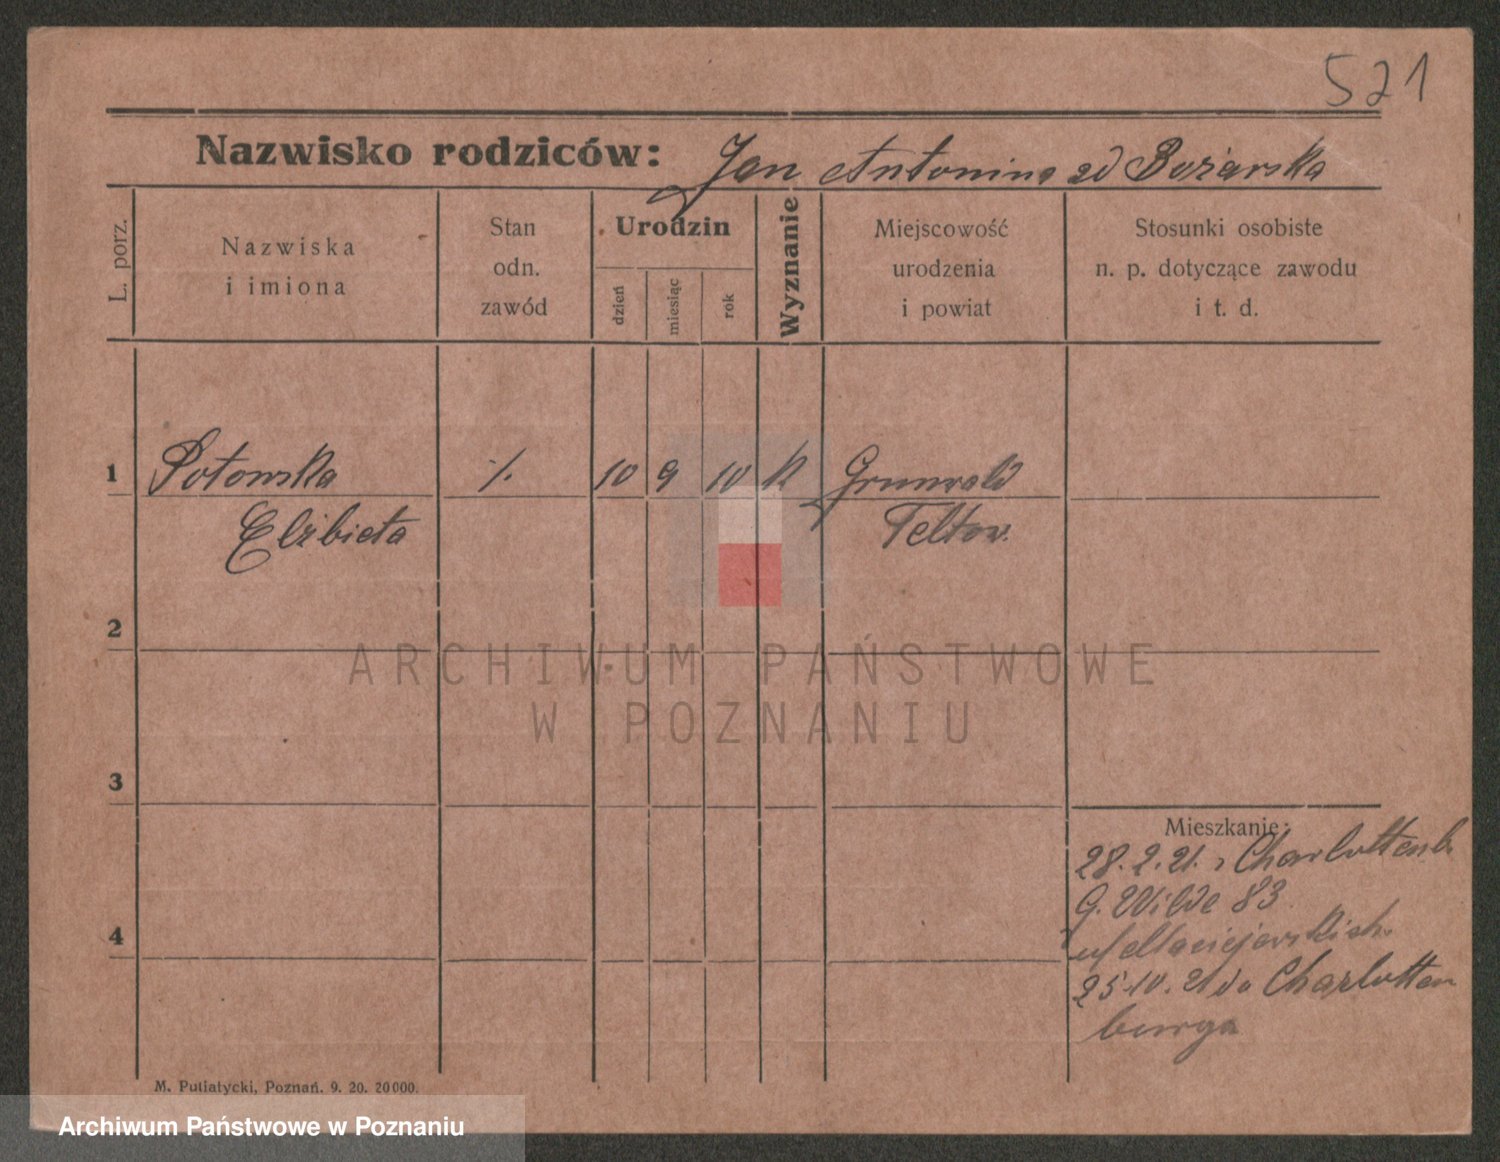 521
Nazwisko rodziców: Jan Antonina zd Bożarska
L. porz.
Nazwiska
i imiona
Stan
odn.
zawód
Urodzin
dzień
miesiąc
rok
Wyznanie
Miejscowość
urodzenia
i powiat
Stosunki osobiste
n. p. dotyczące zawodu
i t. d.
1 Potowska /. 10 9 10 k Grunwald
Elżbieta Teltow.
2
3
4
Mieszkanie:
28.2.21. z Charlottenb.
G. Wilde 83
u/Maciejewskich
25.10.21 do Charlotten
burga
M. Putiatycki, Poznań. 9. 20. 20000.
ARCHIWUM PAŃSTWOWE
W POZNANIU
Archiwum Państwowe w Poznaniu